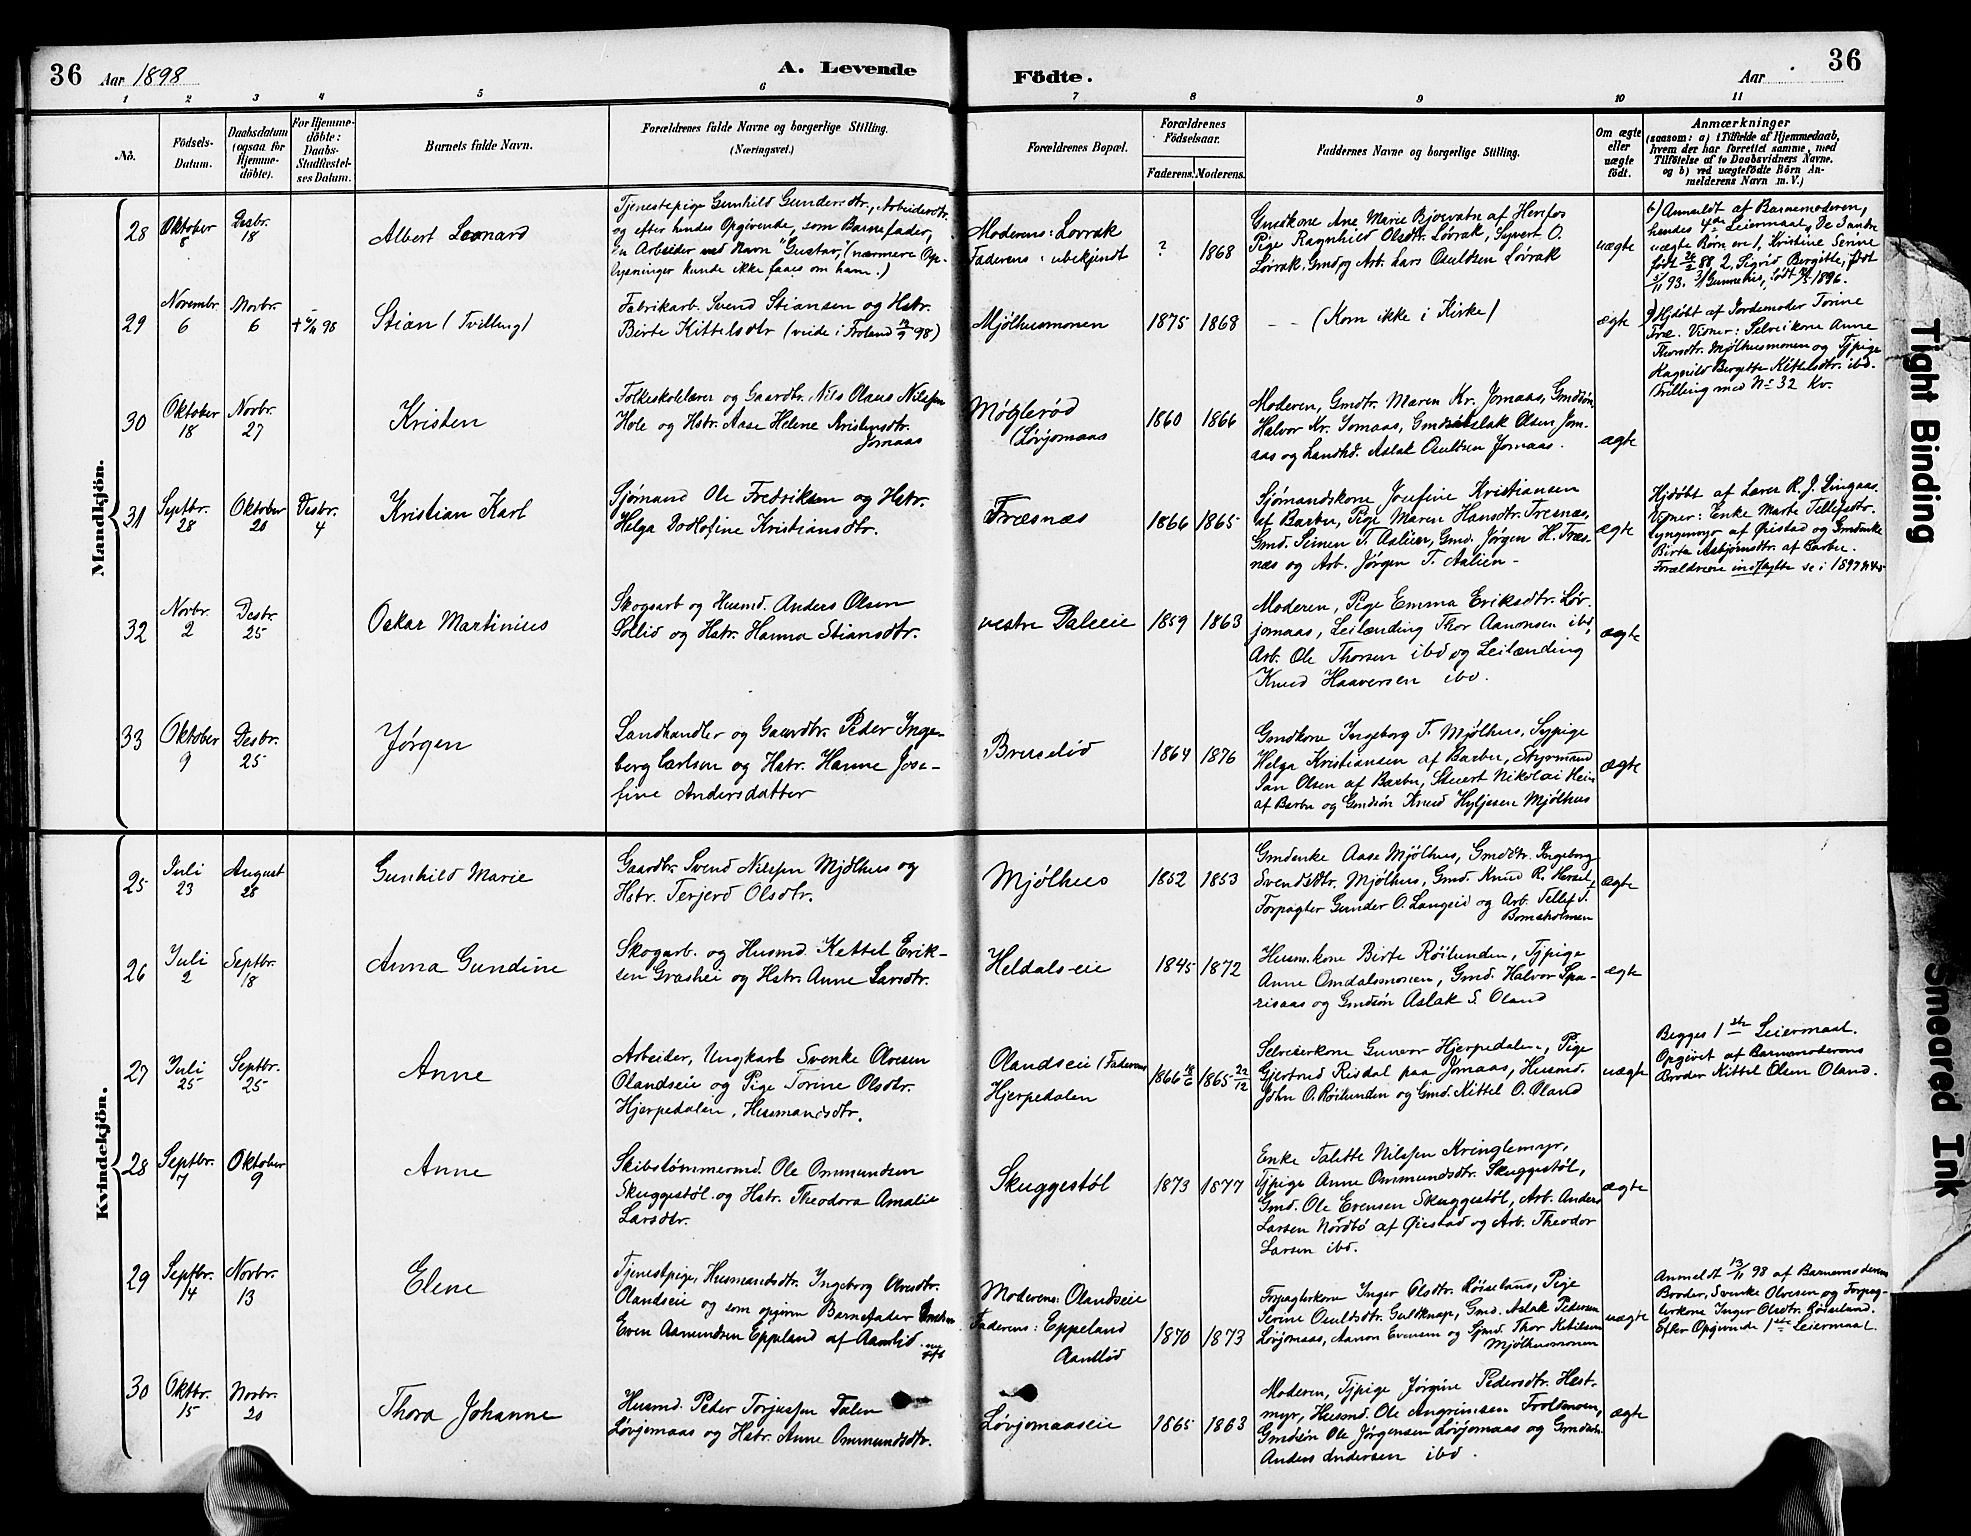 36 Aar 1898
A. Levende Födte.
Aar
36
1 2 3 4 5 6 7 8 9 10 11
No.
Födsels-
Datum.
Daabsdatum
(ogsaa for
Hjemme-
döbte).
For Hjemme-
döbte:
Daabs-
Stadfæstel-
ses Datum.
Barnets fulde Navn.
Forældrenes fulde Navne og borgerlige Stilling.
(Næringsvei.)
Forældrenes Bopæl.
Forældrenes
Födselsaar.
Faderens. Moderens.
Faddernes Navne og borgerlige Stilling.
Om ægte
eller
uægte
födt.
Anmærkninger
(saasom: a) i Tilfælde af Hjemmedaab,
hvem der har forrettet samme, med
Tilföielse af to Daabsvidners Navne.
og b) ved uægtefödte Börn An-
melderens Navn m. V.)
Mandkjön.
28
Oktober
8
Desbr.
18
Albert Leonard
Tjenestepige Gunhild Gundersdtr., Arbeidersdtr.
og efter hendes Opgivende, som Barnefader,
en Arbeider ved Navn "Gustav", (nærmere Op-
lysninger kunde ikke faaes om ham.)
Moderens: Løvrak
Faderens: ubekjendt
? 1868
Gmdkone Ane Marie Bjorvatn af Herefos
Pige Ragnhild Olsdtr. Løvrak, Syvert O.
Løvrak, Gmd og Arb. Lars Osuldsen Løvrak
uægte
b) Anmeldt af Barnemoderen,
hendes 4de Leiermaal, De 3 andre
uægte Børn ere 1, Kristine Senne
født 88 2, Sigrid Bergitte, født
5/11 93. 3/ Gunnelius, født 1896.
29
Novembr.
6
Novbr.
6
+ 6/11 98
Stian (Tvilling)
Fabrikarb. Svend Stiansen og Hstr.
Birte Kittelsdtr (viede i Froland 98)
Mjølhusmonen
1875 1868
– – (Kom ikke i Kirke)
ægte
a) Hjdøbt af Jordemoder Torine
Træ. Vidner: Selveikone Anne
Thorsdtr. Mjølhusmonen og Tjpige
Ragnild Bergitte Kittelsdtr. ibd.
Tvilling med No 32 Kv.
30
Oktober
18
Novbr.
27
Kristen
Folkeskolelærer og Gaardbr. Nils Olaus Nilssen
Hole og Hstr. Aase Helene Kristensdtr.
Jomaas
Møglerød
(Løvjomaas
1860 1866
Moderen, Gmdtr. Maren Kr. Jomaas, Gmdsøn
Halvor Kr. Jomaas, Gmdsøn Aslak Olsen Jom-
aas og Landhd. Aslak Osuldsen Jomaas.
ægte
31
Septbr.
28
Oktober
20
Desbr.
4
Kristian Karl
Sjømand Ole Fredriksen og Hstr.
Helga Dollofine Kristiansdtr.
Træsnæs
1866 1865
Sjømandskone Josefine Kristiansen
af Barbu, Pige Maren Hansdtr. Træsnæs,
Gmd. Simen T. Aalien, Gmd. Jørgen H. Træs-
næs og Arb. Jørgen T. Aalien –
ægte
Hjdøbt af Lærer R. J. Lingaas.
Vidner: Enke Marte Tellefsdtr.
Lyngemyr af Øiestad og Gmdenke
Birte Asbjørnsdtr. af Barbu.
Forældrene indflyttede se i 1897 No 45
32
Novbr.
2
Desbr.
25
Oskar Martinius
Skogsarb og Husmd. Anders Olsen
Sollid og Hstr. Hanna Stiansdtr.
vestre Daleeie
1859 1863
Moderen, Pige Emma Eriksdtr. Løv-
jomaas, Leilænding Thor Aanonsen ibd,
Arb. Ole Thorsen ibd og Leilænding
Knud Haaversen ibd.
ægte
33
Oktober
9
Desbr.
25
Jørgen
Landhandler og Gaardbr. Peder Inge-
berg Carlsen og Hstr. Hanne Jose-
fine Andersdatter
Bruselid
1864 1876
Gmdkone Ingeborg T. Mjølhus, Sypige
Helga Kristiansen af Barbu, Styrmand
Jan Olsen af Barbu, Stuert Nikolai Hein
af Barbu og Gmdsøn Knud Hyljesen Mjølhus
ægte
Kvindekjön.
25
Juli
23
August
28
Gunhild Marie
Gaardbr. Svend Nilssen Mjølhus og
Hstr. Terjerd Olsdtr.
Mjølhus
1852 1853
Gmdenke Aase Mjølhus, Gmddtr. Ingeborg
Svendsdtr. Mjølhus, Gmd. Knud R.
Forpagter Gunder O. Langeid og Arb. Tellef T.
Bomsholmen
ægte
26
Juli
2
Septbr.
18
Anna Gundine
Skogarb. og Husmd. Kettel Erik-
sen Græshei og Hstr. Anne Larsdtr.
Heldalseie
1845 1872
Husm.kone Birte Røilunden, Tjpige
Anne Omdalsmonen, Gmd. Halvor Spa-
risaas og Gmdsøn Aslak S. Oland
ægte
27
Juli
25
Septbr.
25
Anne
Arbeider, Ungkarl Svenke Olvesen
Olandseie og Pige Torine Olsdtr.
Hjerpedalen, Husmandsdtr.
Olandseie (Faderens
Hjerpedalen
1866 1865 22/12
Selveierkone Gunvor Hjerpedalen, Pige
Gjertrud Risdal paa Jomaas, Husmd.
John O. Røilunden og Gmd. Kittel O. Oland
uægte
Begges 1ste Leiermaal.
Opgivet af Barnemoderens
Broder Kittel Olsen Oland.
28
Septbr.
7
Oktober
9
Anne
Skibstømmermd. Ole Ommundsen
Skuggestøl og Hstr. Theodora Amalie
Larsdtr.
Skuggestøl
1873 1877
Enke Talette Nilssen Kringlemyr,
Tjpige Anne Ommundsdtr. Skuggestøl,
Gmd. Ole Evensen Skuggestøl, Arb. Anders
Larsen Nordbø af Øiestad og Arb. Theodor
Larsen ibd.
ægte
29
Septbr.
14
Novbr.
13
Elene
Tjenestpige, Husmandsdtr. Ingeborg Olvesdtr.
Olandseie og som opgiven Barnefader
Even Aamundsen Eppeland af Aamlid
Moderens: Olandseie
Faderens: Eppeland
Aamlid
1870 1873
Forpagterkone Inger Olsdtr. Røiseland, Pige
Serine Osuldsdtr. Guldknap, Gmd. Aslak Pedersen
Løvjomaas, Aanon Evensen og Sjmd. Thor Ketilsen
Mjølhusmonen
uægte
Anmeldt 13/11 98 af Barnemoderens
Broder, Svenke Olvesen og Forpag-
terkone Inger Olsdtr. Røiseland.
Efter Opgivende 1ste Leiermaal.
30
Oktbr.
15
Novbr.
20
Thora Johanne
Husmd. Peder Torjussen Dalen
Løvjomaas og Hstr. Anne Ommundsdtr.
Løvjomaaseie
1865 1863
Moderen, Tjpige Jørgine Pedersdtr. Hest-
myr, Husmd. Ole Angrimsen Troldmoen,
Gmdsøn Ole Jørgensen Løvjomaas og Gmdsøn
Anders Andersen ibd.
ægte
Tight Binding
Smeared Ink